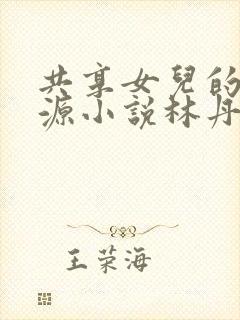 共享女兒的
源小說林丹
王荣海